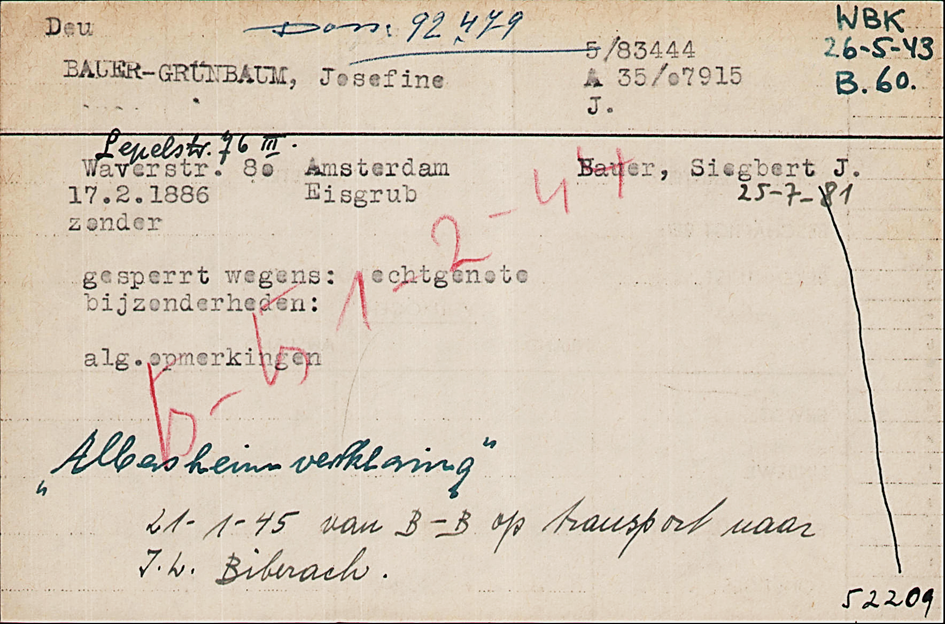 Deu
Doss. 92479
WBK
26-5-43
B. 60.
5/83444
BAUER-GRÜNBAUM, Josefine
A 35/07915
J.
Lepelstr. 76 III.
Waverstr. 80 Amsterdam Bauer, Siegbert J.
17.2.1886 Eisgrub 25-7-81
zonder
gesperrt wegens: echtgenote
bijzonderheden:
alg.opmerkingen
B-B 1-2-44
"Albersheim verklaring"
21-1-45 van B-B op transport naar
I.L. Biberach.
52209